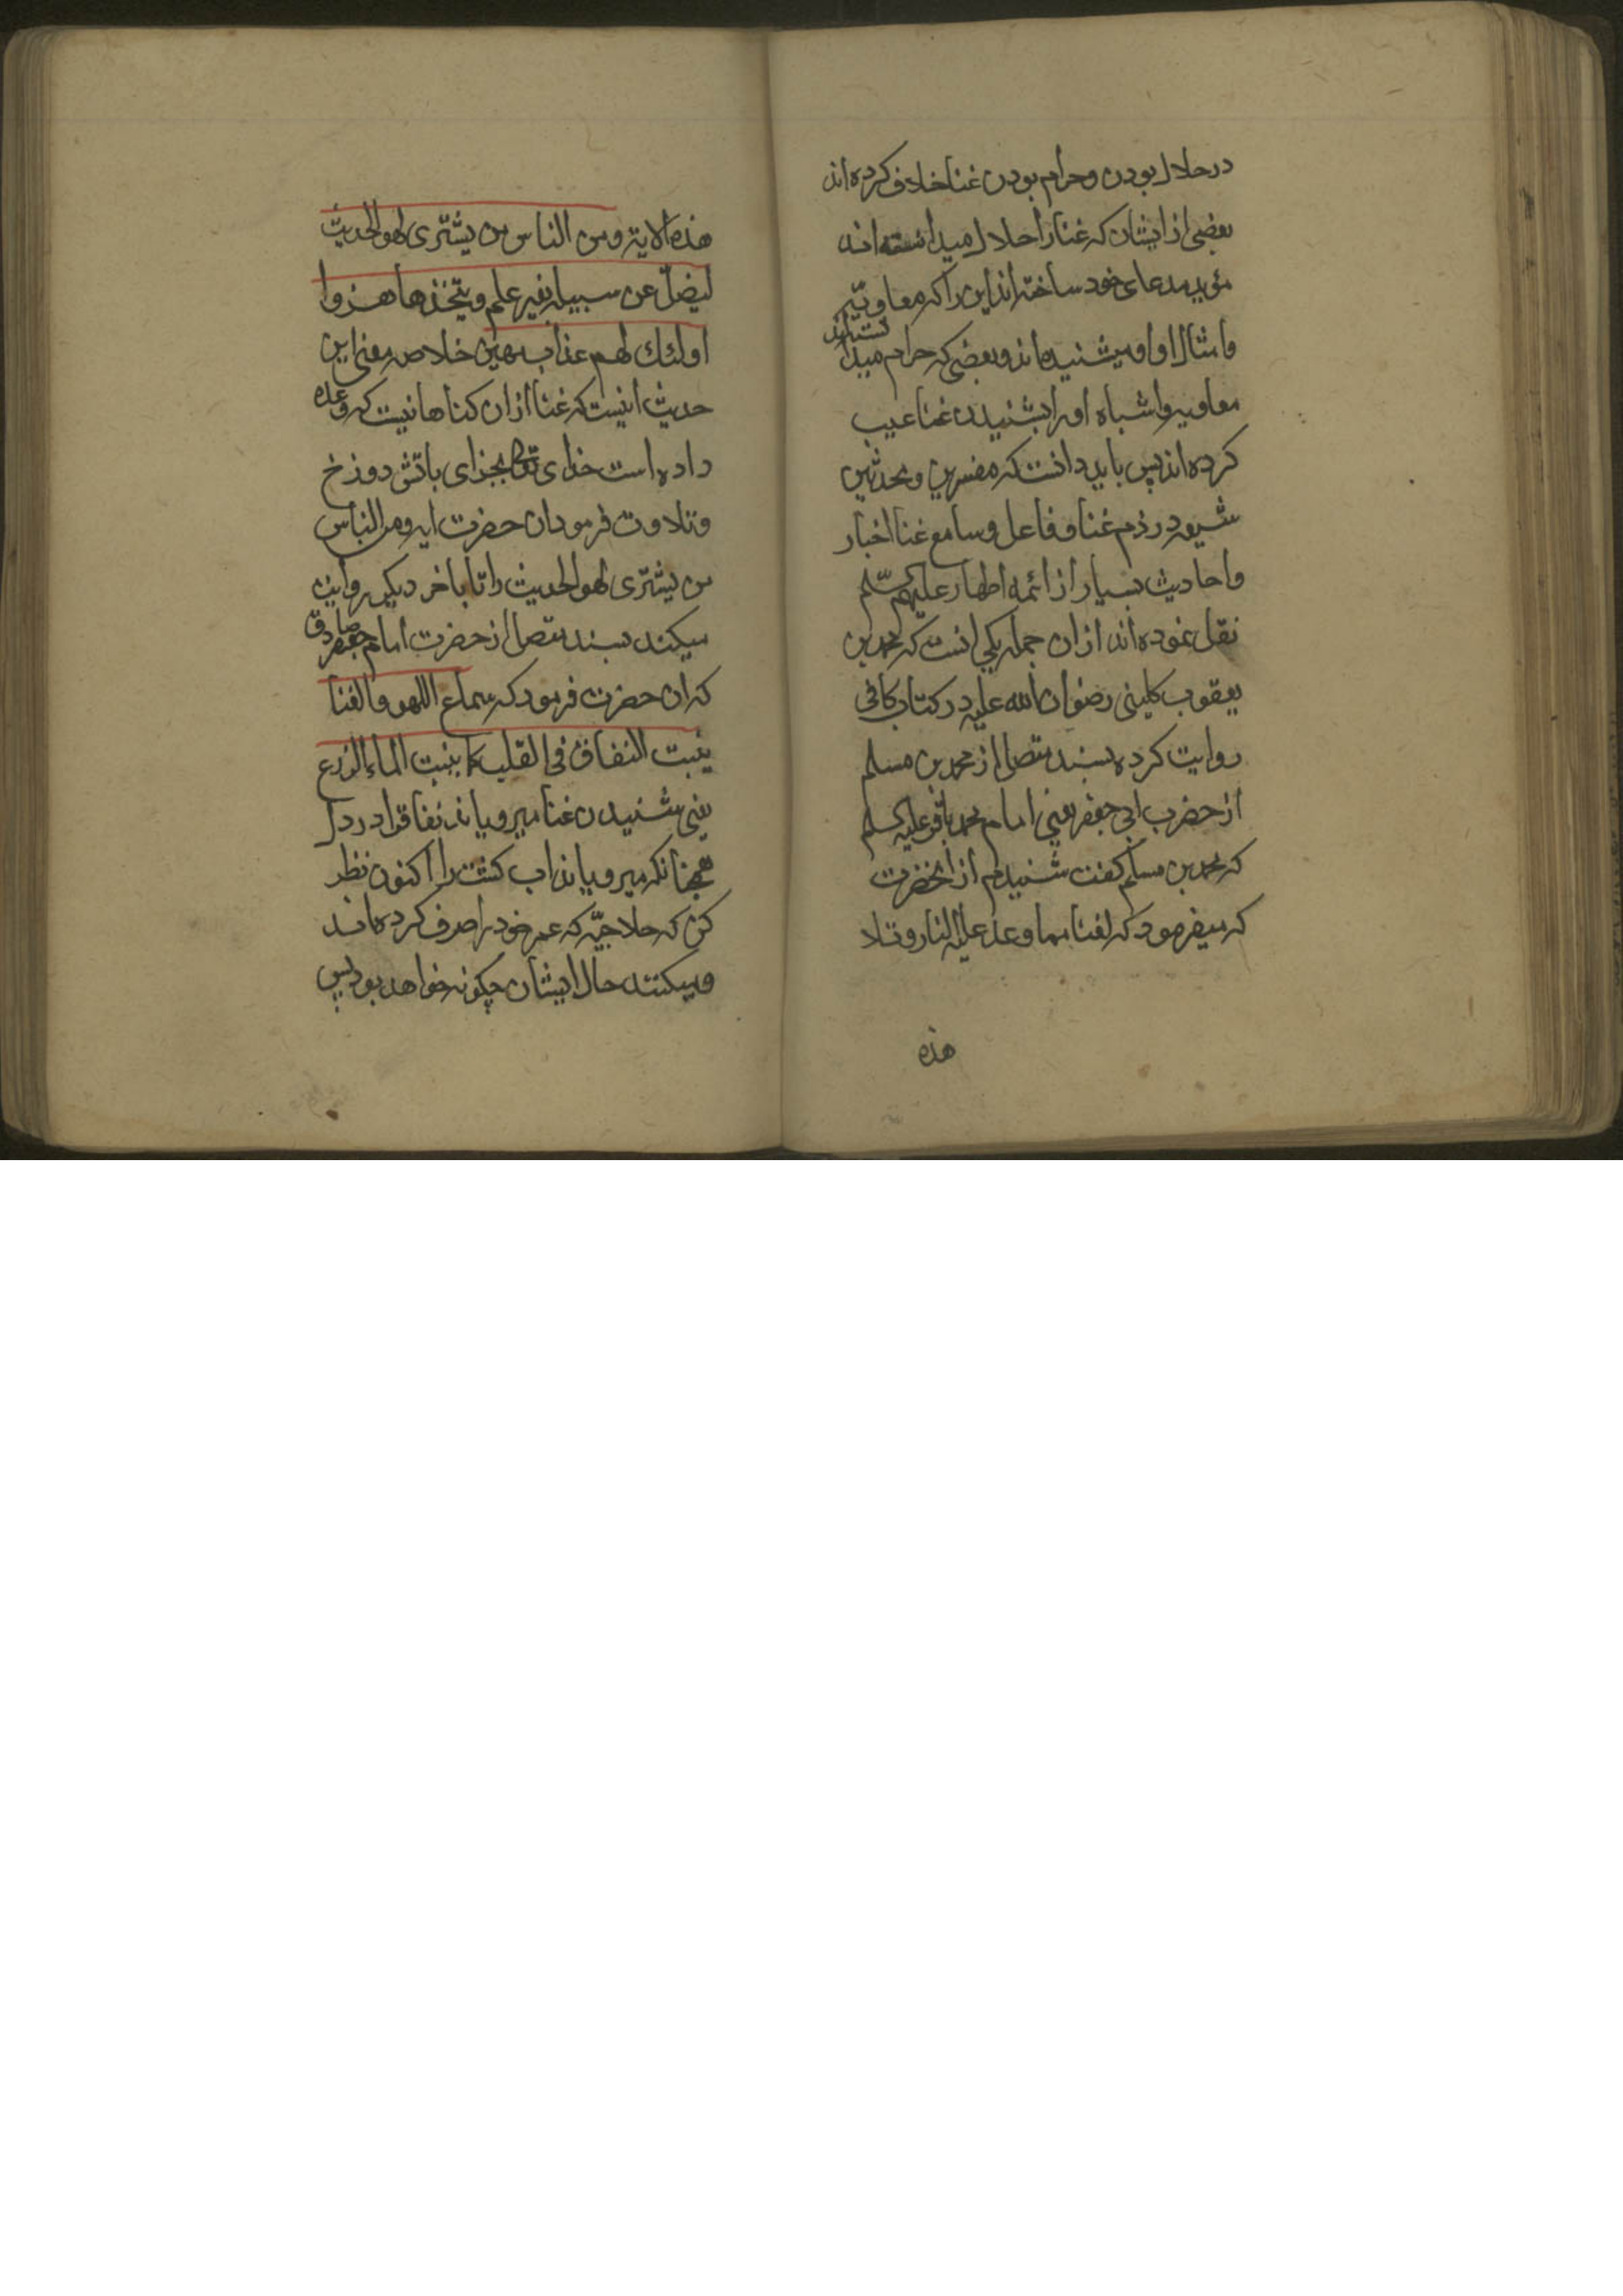 در حلال بودن و حرام بودن غنا خلاف کرده اند
بعضی از ایشان که غنا را حلال میدانسته اند
مؤید مدعای خود ساخته اند این را که معاویه
و امثال او او میشنیده اند و بعضی که حرام میدانسته اند
معاویه و اشباه او را بشنیدن غنا عیب
کرده اند پس باید دانست که مفسرین و محدثین
شیعه در ذم غنا و فاعل و سامع غنا اخبار
و احادیث بسیار از ائمه اطهار علیهم السلم
نقل نموده اند از ان جمله یکی انست که محمد بن
یعقوب کلینی رضوان الله علیه در کتاب کافی
روایت کرده بسند متصل از محمد بن مسلم
از حضرت ابی جعفر یعنی امام محمد باقر علیه السلم
که محمد بن مسلم کفت شنیدم از انحضرت
که میفرمود که لغنا مما وعد علیه النار و تلا
هذه
هذه الایة و من الناس من یشتری لهو الحدیث
لیضل عن سبیله بغیر علم و یتخذها هزوا
اولئك لهم عذاب مهین خلاصه معنی این
حدیث اینست که غنا از ان کناهانیست که وعده
داده است خدای تعالی بجزای باتش دوزخ
و تلاوت فرمود ان حضرت ایه و من الناس
من یشتری لهو الحدیث را تا باخر دیکر روایت
میکند بسند متصل از حضرت امام جعفر صادق
که ان حضرت فرمود که سماع اللهو و الغنا
ینبت النفاق فی القلب کما ینبت الماء الزرع
یعنی شنیدن غنا میرویاند نفاق را در دل
همچنانکه میرویاند اب کشت را اکنون نظر
کن که حلاجیّه که عمر خود را صرف کرده اند
و میکنند حال ایشان چکونه خواهد بود پس